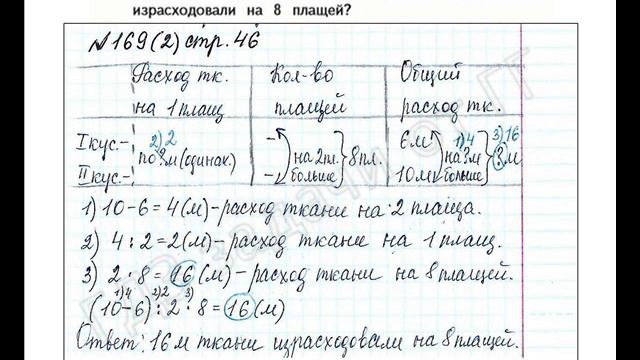 израсходовали на 8 плащей?
№169(2) стр. 46
Расход тк. Кол-во Общий
на 1 плащ плащей расход тк.
I кус.- 2) 2 - 6 м 1) 4 3) 16
по ? м (одинак.) на 2 пл. 8 пл. на ? м ? м
II кус.- - больше 10 м больше
1) 10-6=4(м)-расход ткани на 2 плаща.
2) 4:2=2(м)-расход ткани на 1 плащ.
3) 2·8=16(м)-расход ткани на 8 плащей.
1) 4 2) 2 3)
(10-6):2·8=16(м)
Ответ: 16 м ткани израсходовали на 8 плащей.